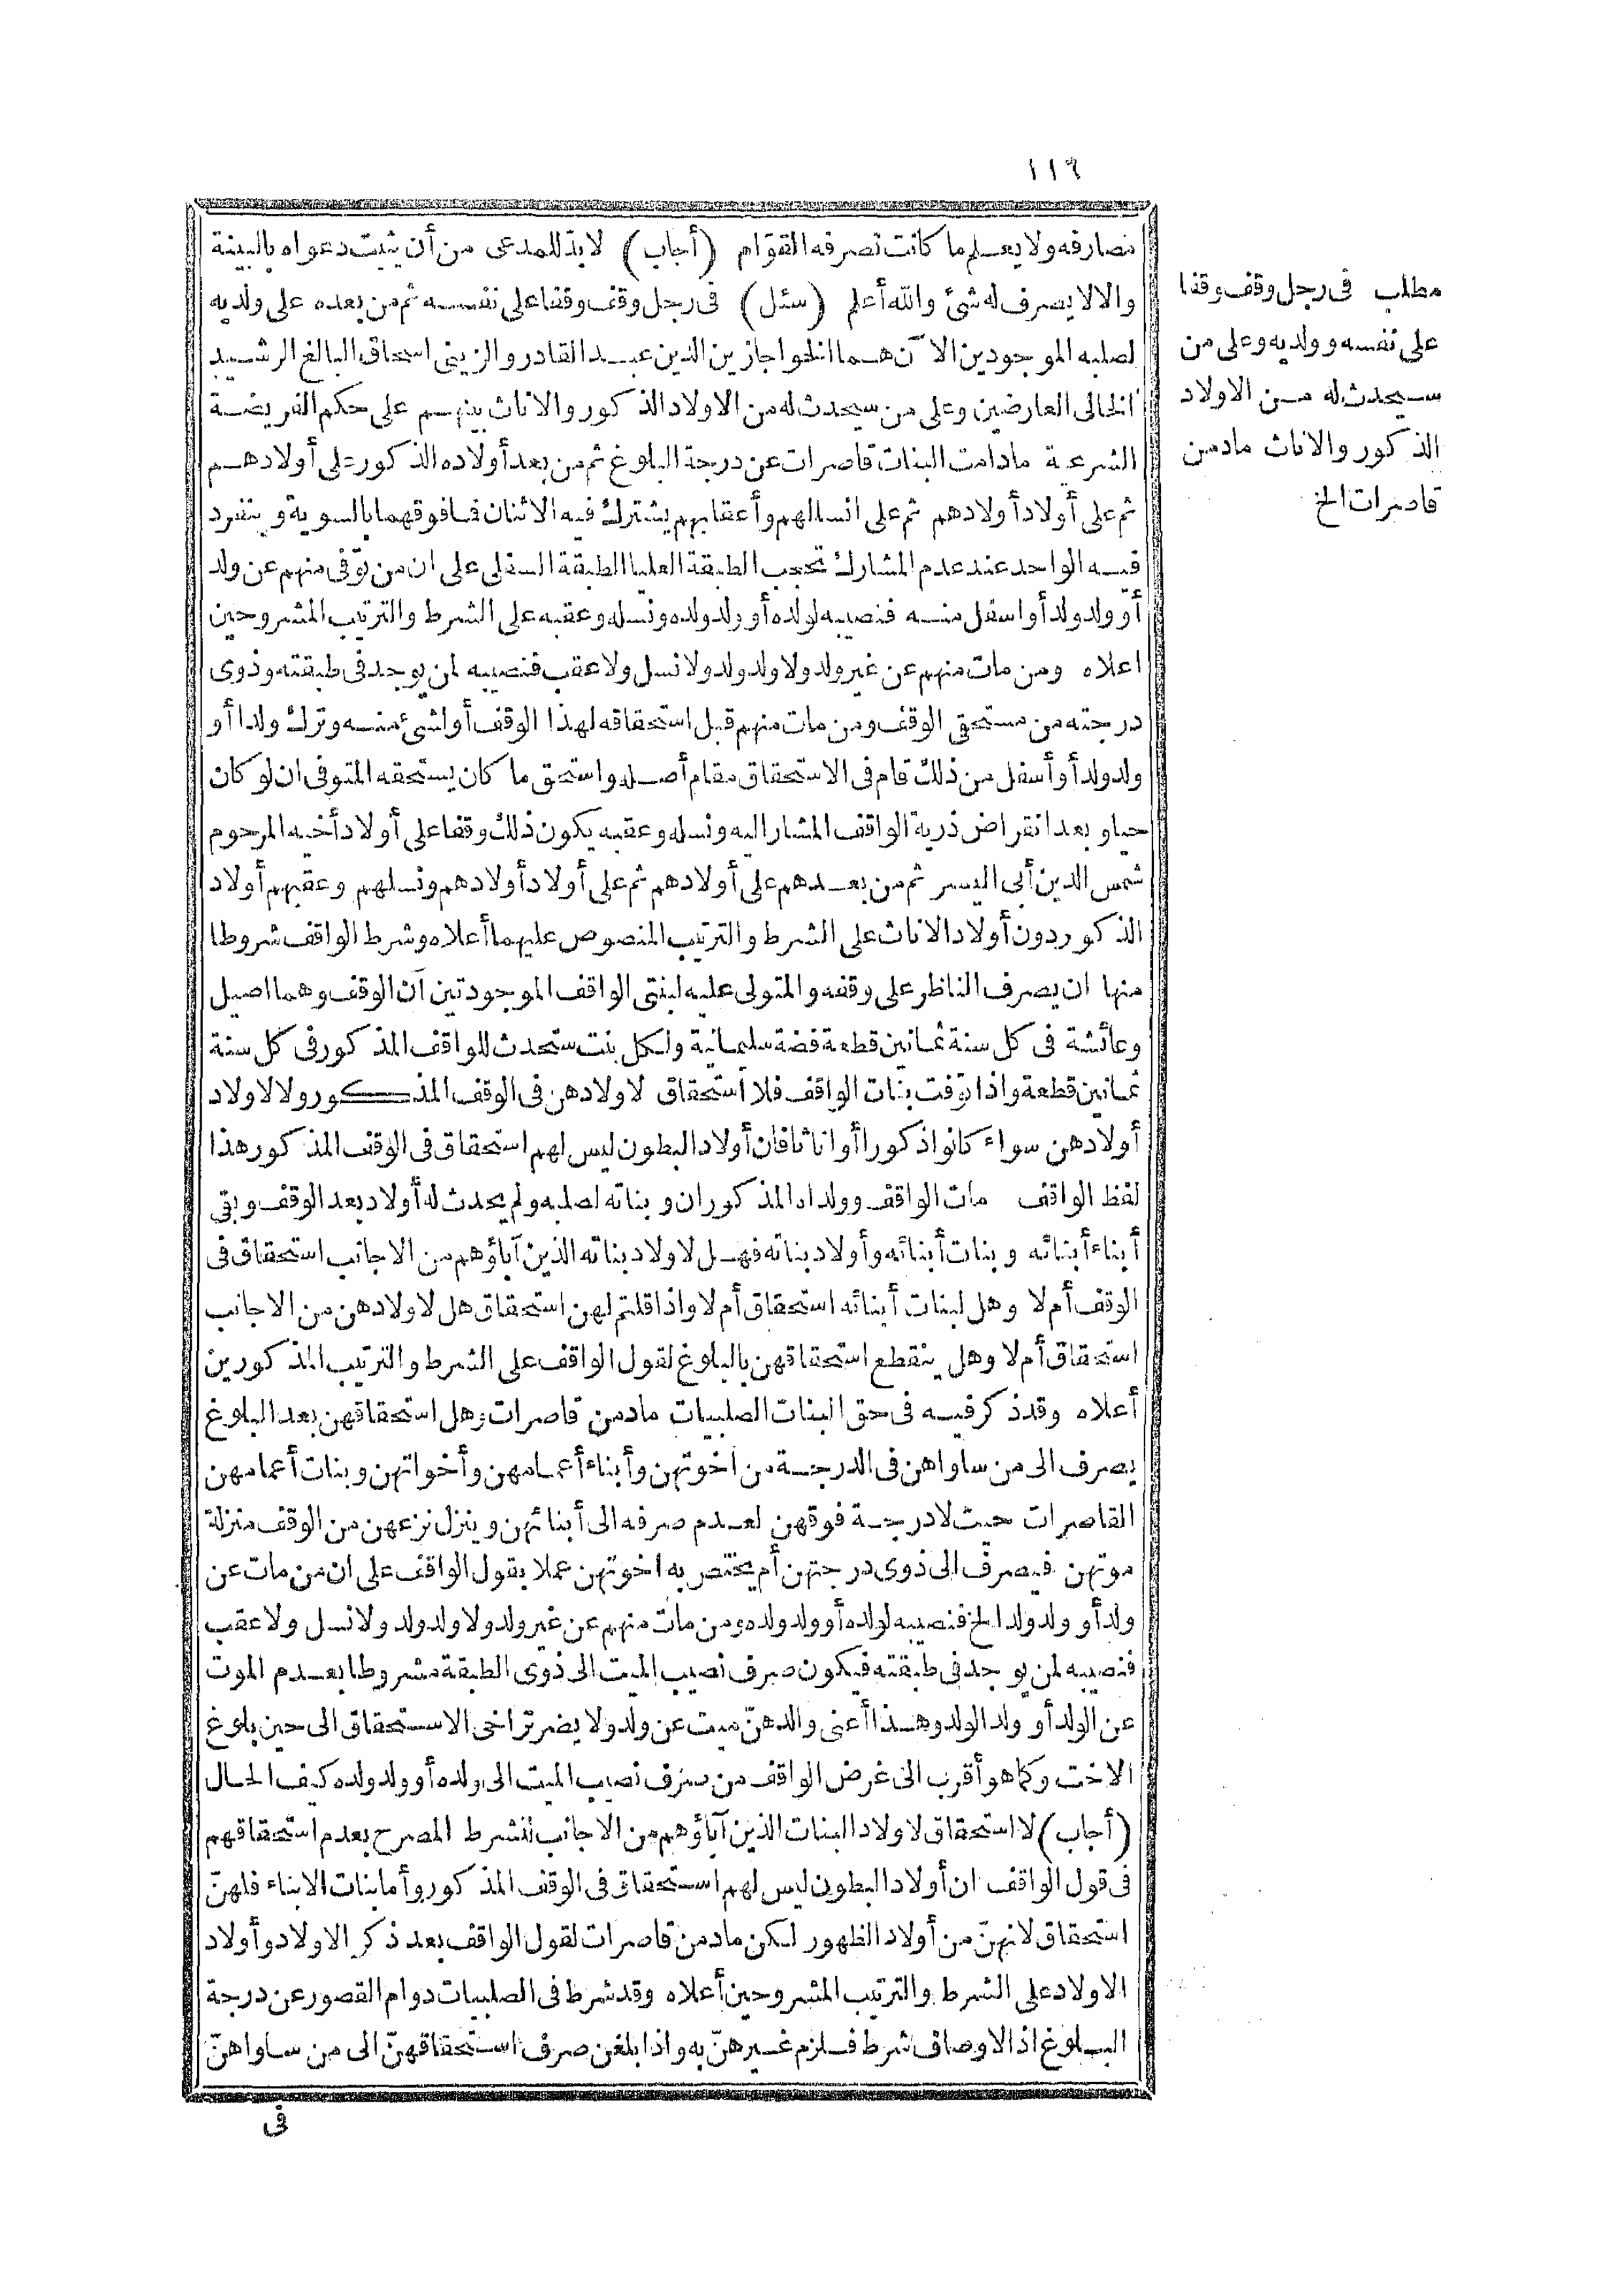 ١١٦
مصارفه ولا يعلم ما كانت تصرفه القوّام (أجاب) لابدّ للمدعى من أن يثبت دعواه بالبينة
والا لا يصرف له شئ والله أعلم (سئل) فى رجل وقف وقفا على نفسه ثم من بعده على ولديه
لصلبه الموجودين الآن هما الخواجا زين الدين عبد القادر والزينى اسحاق البالغ الرشيد
الخالى العارضين وعلى من سيحدث له من الاولاد الذكور والاناث بينهم على حكم الفريضة
الشرعية مادامت البنات قاصرات عن درجة البلوغ ثم من بعد أولاده الذكور على أولادهم
ثم على أولاد أولادهم ثم على انسالهم وأعقابهم يشترك فيه الاثنان فما فوقهما بالسوية وينفرد
فيه الواحد عند عدم المشارك تحجب الطبقة العليا الطبقة السفلى على ان من توّفى منهم عن ولد
أو ولد ولد أو اسفل منه فنصيبه لولده أو ولد ولده ونسله وعقبه على الشرط والترتيب المشروحين
اعلاه ومن مات منهم عن غير ولد ولا ولد ولد ولا نسل ولا عقب فنصيبه لمن يوجد فى طبقته وذوى
درجته من مستحقى الوقف ومن مات منهم قبل استحقاقه لهذا الوقف أو لشئ منه وترك ولدا أو
ولد ولد أو أسفل من ذلك قام فى الاستحقاق مقام أصله واستحق ما كان يستحقه المتوفى ان لو كان
حيا وبعد انقراض ذرية الواقف المشار اليه ونسله وعقبه يكون ذلك وقفا على أولاد أخيه المرحوم
شمس الدين أبى اليسر ثم من بعدهم على أولادهم ثم على أولاد أولادهم ونسلهم وعقبهم أولاد
الذكور دون أولاد الاناث على الشرط والترتيب المنصوص عليهما أعلاه وشرط الواقف شروطا
منها ان يصرف الناظر على وقفه والمتولى عليه لبنتى الواقف الموجودتين آن الوقف وهما اصيل
وعائشة فى كل سنة ثمانين قطعة فضة سليمانية ولكل بنت ستحدث للواقف المذكور فى كل سنة
ثمانين قطعة واذا توّفت بنات الواقف فلا استحقاق لاولادهن فى الوقف المذكور ولا لاولاد
أولادهن سواء كانوا ذكورا أو اناثا فان أولاد البطون ليس لهم استحقاق فى الوقف المذكور هذا
لفظ الواقف مات الواقف وولداه المذكوران وبناته لصلبه ولم يحدث له أولاد بعد الوقف وبقى
أبناء أبنائه وبنات أبنائه وأولاد بناته فهل لاولاد بناته الذين آباؤهم من الاجانب استحقاق فى
الوقف أم لا وهل لبنات أبنائه استحقاق أم لا واذا قلتم لهن استحقاق هل لاولادهن من الاجانب
استحقاق أم لا وهل ينقطع استحقاقهن بالبلوغ لقول الواقف على الشرط والترتيب المذكورين
أعلاه وقد ذكر فيه فى حق البنات الصلبيات مادمن قاصرات وهل استحقاقهن بعد البلوغ
يصرف الى من ساواهن فى الدرجة من اخوتهن وأبناء أعمامهن وأخواتهن وبنات أعمامهن
القاصرات حيث لا درجة فوقهن لعدم صرفه الى أبنائهن وينزل نزعهن من الوقف منزلة
موتهن فيصرف الى ذوى درجتهن أم يختص به اخوتهن عملا بقول الواقف على ان من مات عن
ولد أو ولد ولد الخ فنصيبه لولده أو ولد ولده ومن مات منهم عن غير ولد ولا ولد ولد ولا نسل ولا عقب
فنصيبه لمن يوجد فى طبقته فيكون صرف نصيب الميت الى ذوى الطبقة مشروطا بعدم الموت
عن الولد أو ولد الولد وهذا أعنى والدهنّ ميت عن ولد ولا يضر تراخى الاستحقاق الى حين بلوغ
الاخت وكما هو أقرب الى غرض الواقف من صرف نصيب الميت الى ولده أو ولد ولده كيف الحال
(أجاب) لا استحقاق لاولاد البنات الذين آباؤهم من الاجانب للشرط المصرح بعدم استحقاقهم
فى قول الواقف ان أولاد البطون ليس لهم استحقاق فى الوقف المذكور وأما بنات الابناء فلهنّ
استحقاق لانهنّ من أولاد الظهور لكن مادمن قاصرات لقول الواقف بعد ذكر الاولاد وأولاد
الاولاد على الشرط والترتيب المشروحين أعلاه وقد شرط فى الصلبيات دوام القصور عن درجة
البلوغ اذ الاوصاف شرط فلزم غيرهنّ به واذا بلغن صرف استحقاقهنّ الى من ساواهنّ
فى
مطلب فى رجل وقف وقفا
على نفسه وولديه وعلى من
سيحدث له من الاولاد
الذكور والاناث مادمن
قاصرات الخ